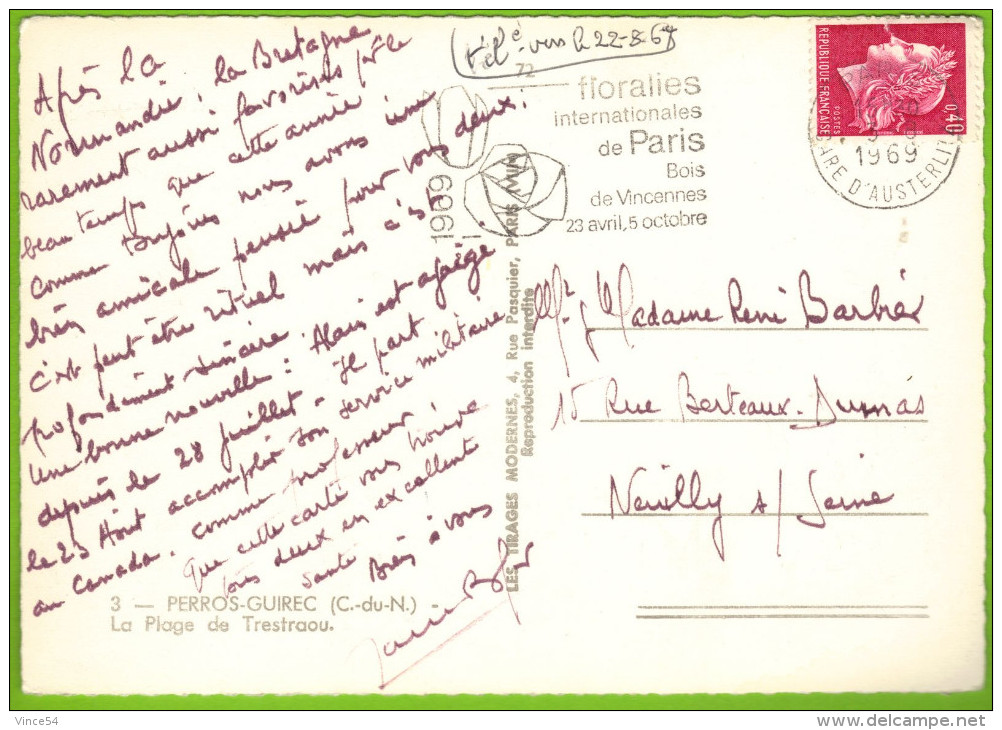 télé vers le 22-8-69
72
floralies
internationales
de Paris
Bois
de Vincennes
23 avril, 5 octobre
1969
REPUBLIQUE FRANÇAISE
POSTES
0,40
1969
GARE D'AUSTERLITZ
Après la
Normandie, la Bretagne
rarement aussi favorisée par le
beau temps que cette année
Comme toujours nous avons une
bien amicale pensée pour vous deux :
c'est peut être rituel mais c'est
profondément sincère.
Une bonne nouvelle : Alain est agrégé
depuis le 28 juillet - Il part
le 23 Août accomplir son service militaire
au Canada. comme professeur
Que cette carte vous trouve
tous deux en excellente
santé
Bien à vous
3 — PERROS-GUIREC (C.-du-N.) -
La Plage de Trestraou.
LES TIRAGES MODERNES, 4, Rue Pasquier, PARIS
Reproduction interdite
Mr & Madame René Barbier
15 Rue Berteaux-Dumas
Neuilly s/ Seine
Vince54
delcampe.net